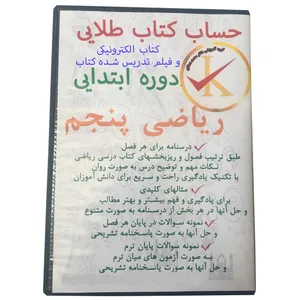 حساب کتاب طلایی
کتاب الکترونیکی
و فیلم تدریس شده کتاب
دوره ابتدایی
ریاضی پنجم
درسنامه برای هر فصل
طبق ترتیب فصول و زیربخشهای کتاب درسی ریاضی
نکات مهم و توضیح درس به صورت روان
با تکنیک یادگیری راحت و سریع برای دانش آموزان
مثالهای کلیدی
برای یادگیری و فهم بیشتر و بهتر مطالب
و حل آنها در هر بخش از درسنامه به صورت متنوع
نمونه سوالات در پایان هر فصل
و حل آنها به صورت پاسخنامه تشریحی
نمونه سوالات پایان ترم
و به صورت آزمون های میان ترم
و حل آنها به صورت پاسخنامه تشریحی